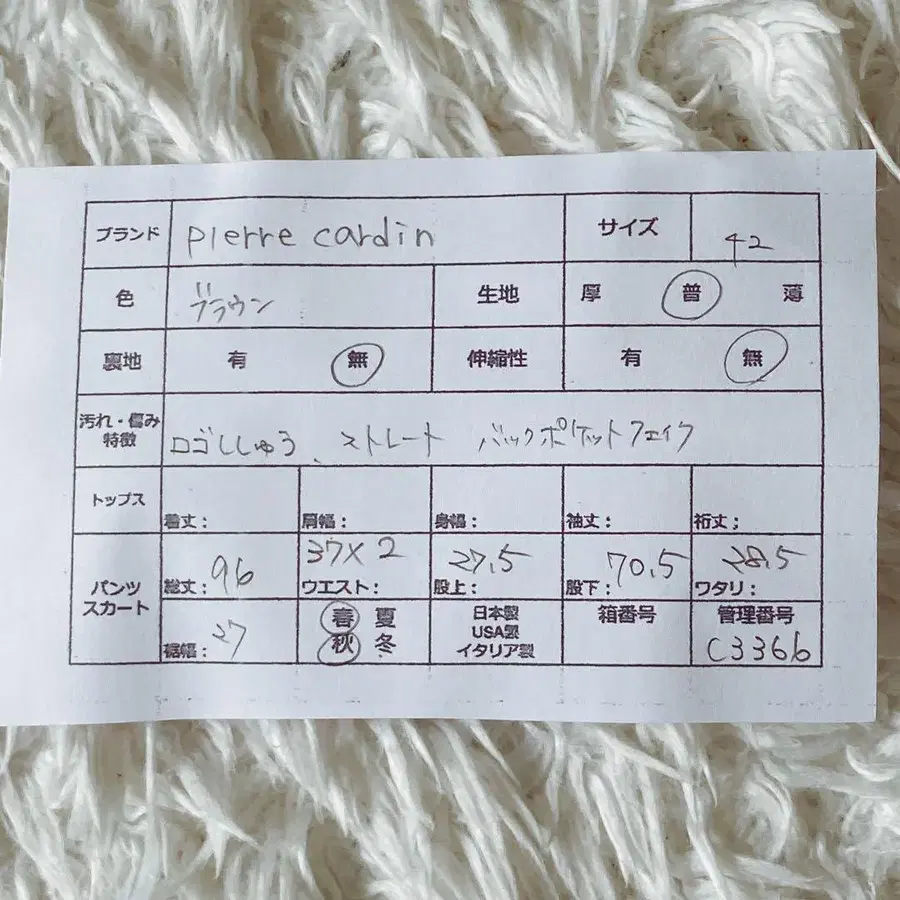 ブランド pierre cardin サイズ 42
色 ブラウン 生地 厚 普 薄
裏地 有 無 伸縮性 有 無
汚れ・傷み
特徴 ロゴししゅう、ストレート バックポケットフェイク
トップス 着丈: 肩幅: 身幅: 袖丈: 裄丈;
パンツ
スカート
総丈: 96 ウエスト: 37×2 股上: 27.5 股下: 70.5 ワタリ: 28.5
裾幅: 27
春 夏
秋 冬
日本製
USA製
イタリア製
箱番号
管理番号
C3366